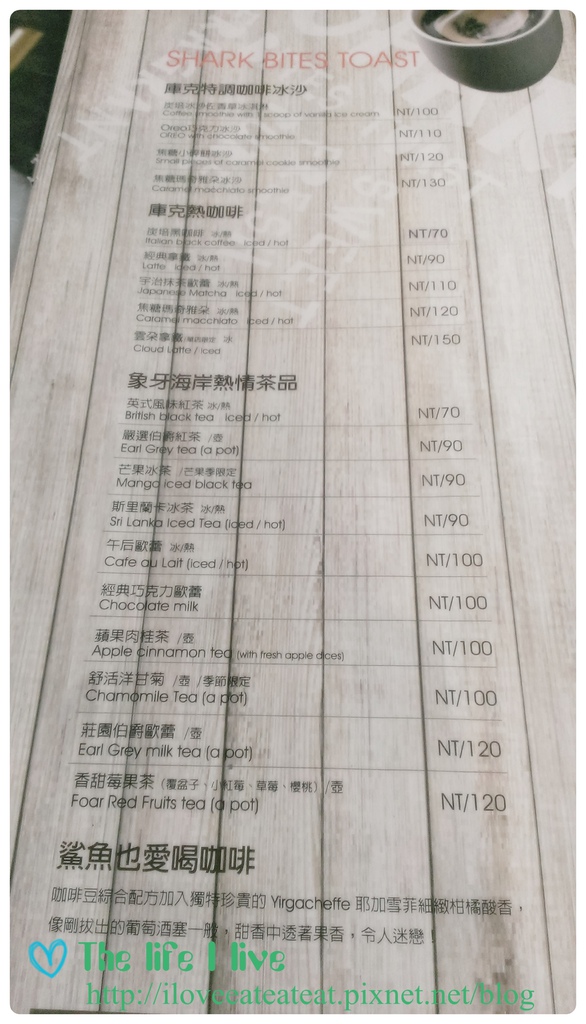 SHARK BITES TOAST
庫克特調咖啡冰沙
炭焙冰沙佐香草冰淇淋
Coffee smoothie with 1 scoop of vanilla ice cream NT/100
Oreo巧克力冰沙
OREO with chocolate smoothie NT/110
焦糖小脆餅冰沙
Small pieces of caramel cookie smoothie NT/120
焦糖瑪奇雅朵冰沙
Caramel macchiato smoothie NT/130
庫克熱咖啡
炭焙黑咖啡 冰/熱
Italian black coffee iced / hot NT/70
經典拿鐵 冰/熱
Latte iced / hot NT/90
宇治抹茶歐蕾 冰/熱
Japanese Matcha iced / hot NT/110
焦糖瑪奇雅朵 冰/熱
Caramel macchiato iced / hot NT/120
雲朵拿鐵 冰
Cloud Latte / iced NT/150
象牙海岸熱情茶品
英式風味紅茶 冰/熱
British black tea iced / hot NT/70
嚴選伯爵紅茶 /壺
Earl Grey tea (a pot) NT/90
芒果冰茶 /芒果季限定
Mango iced black tea NT/90
斯里蘭卡冰茶 冰/熱
Sri Lanka Iced Tea (iced / hot) NT/90
午后歐蕾 冰/熱
Cafe au Lait (iced / hot) NT/100
經典巧克力歐蕾
Chocolate milk NT/100
蘋果肉桂茶 /壺
Apple cinnamon tea (with fresh apple dices) NT/100
舒活洋甘菊 /壺 /季節限定
Chamomile Tea (a pot) NT/100
莊園伯爵歐蕾 /壺
Earl Grey milk tea (a pot) NT/120
香甜莓果茶（覆盆子、小紅莓、草莓、櫻桃）/壺
Foar Red Fruits tea (a pot) NT/120
鯊魚也愛喝咖啡
咖啡豆綜合配方加入獨特珍貴的 Yirgacheffe 耶加雪菲細緻柑橘酸香，
像剛拔出的葡萄酒塞一般，甜香中透著果香，令人迷戀！
The life I live
http://ilovecateateat.pixnet.net/blog